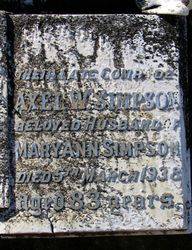 THEIR LATE COMRADE
AXEL W. SIMPSON
BELOVED HUSBAND OF
MARY ANN SIMPSON
DIED 5TH MARCH 1938
aged 83 years.